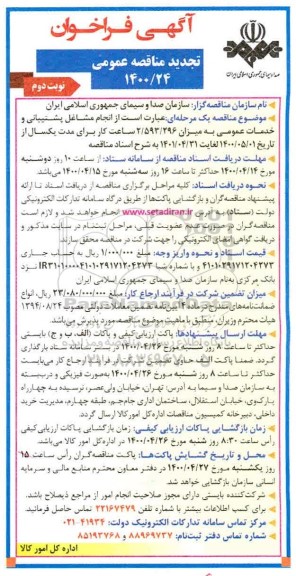 آگهی فراخوان
صدا و سیمای جمهوری اسلامی ایران
تجدید مناقصه عمومی
۱۴۰۰/۲۴
نوبت دوم
نام سازمان مناقصه‌گزار: سازمان صدا و سیمای جمهوری اسلامی ایران
موضوع مناقصه یک مرحله‌ای: عبارت است از انجام مشاغل پشتیبانی و
خدمات عمومی به میزان ۲/۵۹۳/۲۹۶ ساعت کار برای مدت یکسال از
تاریخ ۱۴۰۰/۰۵/۰۱ لغایت ۱۴۰۱/۰۴/۳۱ به شرح اسناد مناقصه
مهلت دریافت اسناد مناقصه از سامانه ستاد: از ساعت ۱۰ روز دوشنبه
مورخ ۱۴۰۰/۰۴/۱۴ حداکثر تا ساعت ۱۶ روز سه‌شنبه مورخ ۱۴۰۰/۰۴/۱۵ می‌باشد.
نحوه دریافت اسناد: کلیه مراحل برگزاری مناقصه از دریافت اسناد تا ارائه
پیشنهاد مناقصه‌گران و بازگشایی پاکت‌ها از طریق درگاه سامانه تدارکات الکترونیکی
دولت (ستاد) به آدرس www.setadiran.ir انجام خواهد شد و لازم است
مناقصه‌گران در صورت عدم عضویت قبلی، مراحل ثبت‌نام در سایت مذکور و
دریافت گواهی امضای الکترونیکی را جهت شرکت در مناقصه محقق سازند.
قیمت اسناد و نحوه واریز وجه: مبلغ ۱/۰۰۰/۰۰۰ ریال به حساب جاری
۴۱۰۱۰۲۹۱۷۱۲۰۴۲۷۳ و با شماره شبا IR۳۱۰۱۰۰۰۰۴۱۰۱۰۲۹۱۷۱۲۰۴۲۷۳ نزد
بانک مرکزی به‌نام سازمان صدا و سیمای جمهوری اسلامی ایران
میزان تضمین شرکت در فرآیند ارجاع کار: مبلغ ۲۳/۰۸۰/۰۰۰/۰۰۰ ریال، انواع
هیأت محترم وزیران، منطبق با ماهیت موضوع مناقصه، مورد پذیرش می‌باشد.
مهلت ارسال پیشنهادها: پاکت ارزیابی کیفی و پاکات (الف، ب و ج) بایستی
حداکثر تا ساعت ۸ روز شنبه مورخ ۱۴۰۰/۰۴/۲۶ در سامانه ستاد بارگذاری
حداکثر تا ساعت ۸ روز شنبه مورخ ۱۴۰۰/۰۴/۲۶ به‌صورت فیزیکی و دربسته
به سازمان صدا و سیما به آدرس: تهران، خیابان ولی‌عصر، نرسیده به چهارراه
پارک‌وی، خیابان استقلال، ساختمان اداری جام‌جم، طبقه چهارم، مدیریت خرید
داخلی، دبیرخانه کمیسیون مناقصات اداره‌کل امور کالا ارسال گردد.
زمان بازگشایی پاکات ارزیابی کیفی: زمان بازگشایی پاکات ارزیابی کیفی
رأس ساعت ۸:۳۰ روز شنبه مورخ ۱۴۰۰/۰۴/۲۶ در اداره‌کل امور کالا می‌باشد.
محل و تاریخ گشایش پاکت‌ها: پاکت مناقصه‌گران رأس ساعت ۱۵
روز یکشنبه مورخ ۱۴۰۰/۰۴/۲۷ در دفتر معاون محترم منابع مالی و سرمایه
انسانی سازمان بازگشایی خواهد شد.
شرکت‌کننده بایستی دارای مجوز صلاحیت انجام امور از مراجع ذیصلاح باشد.
برای کسب اطلاعات بیشتر با شماره تلفن ۲۲۱۶۷۴۷۹ تماس حاصل فرمائید.
مرکز تماس سامانه تدارکات الکترونیک دولت: ۴۱۹۳۴-۰۲۱
شماره تماس دفتر ثبت‌نام: ۸۸۹۶۹۷۳۷ و ۸۵۱۹۳۷۶۸
اداره کل امور کالا